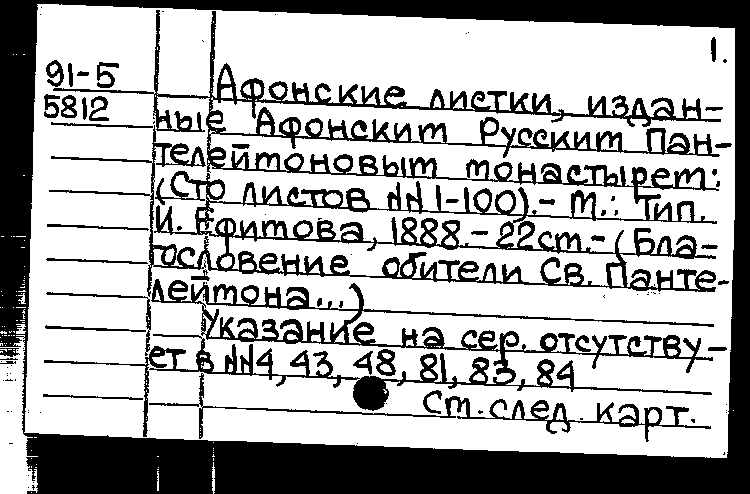 1.
91-5
5812
Афонские листки, издан-
ные Афонским Русским Пан-
телеймоновым монастырем:
(Сто листов №№ 1-100).- М.: Тип.
И. Ефимова, 1888.- 22см.- (Бла-
гословение обители Св. Панте-
леймона...)
Указание на сер. отсутству-
ет в №№4, 43, 48, 81, 83, 84
См. след. карт.